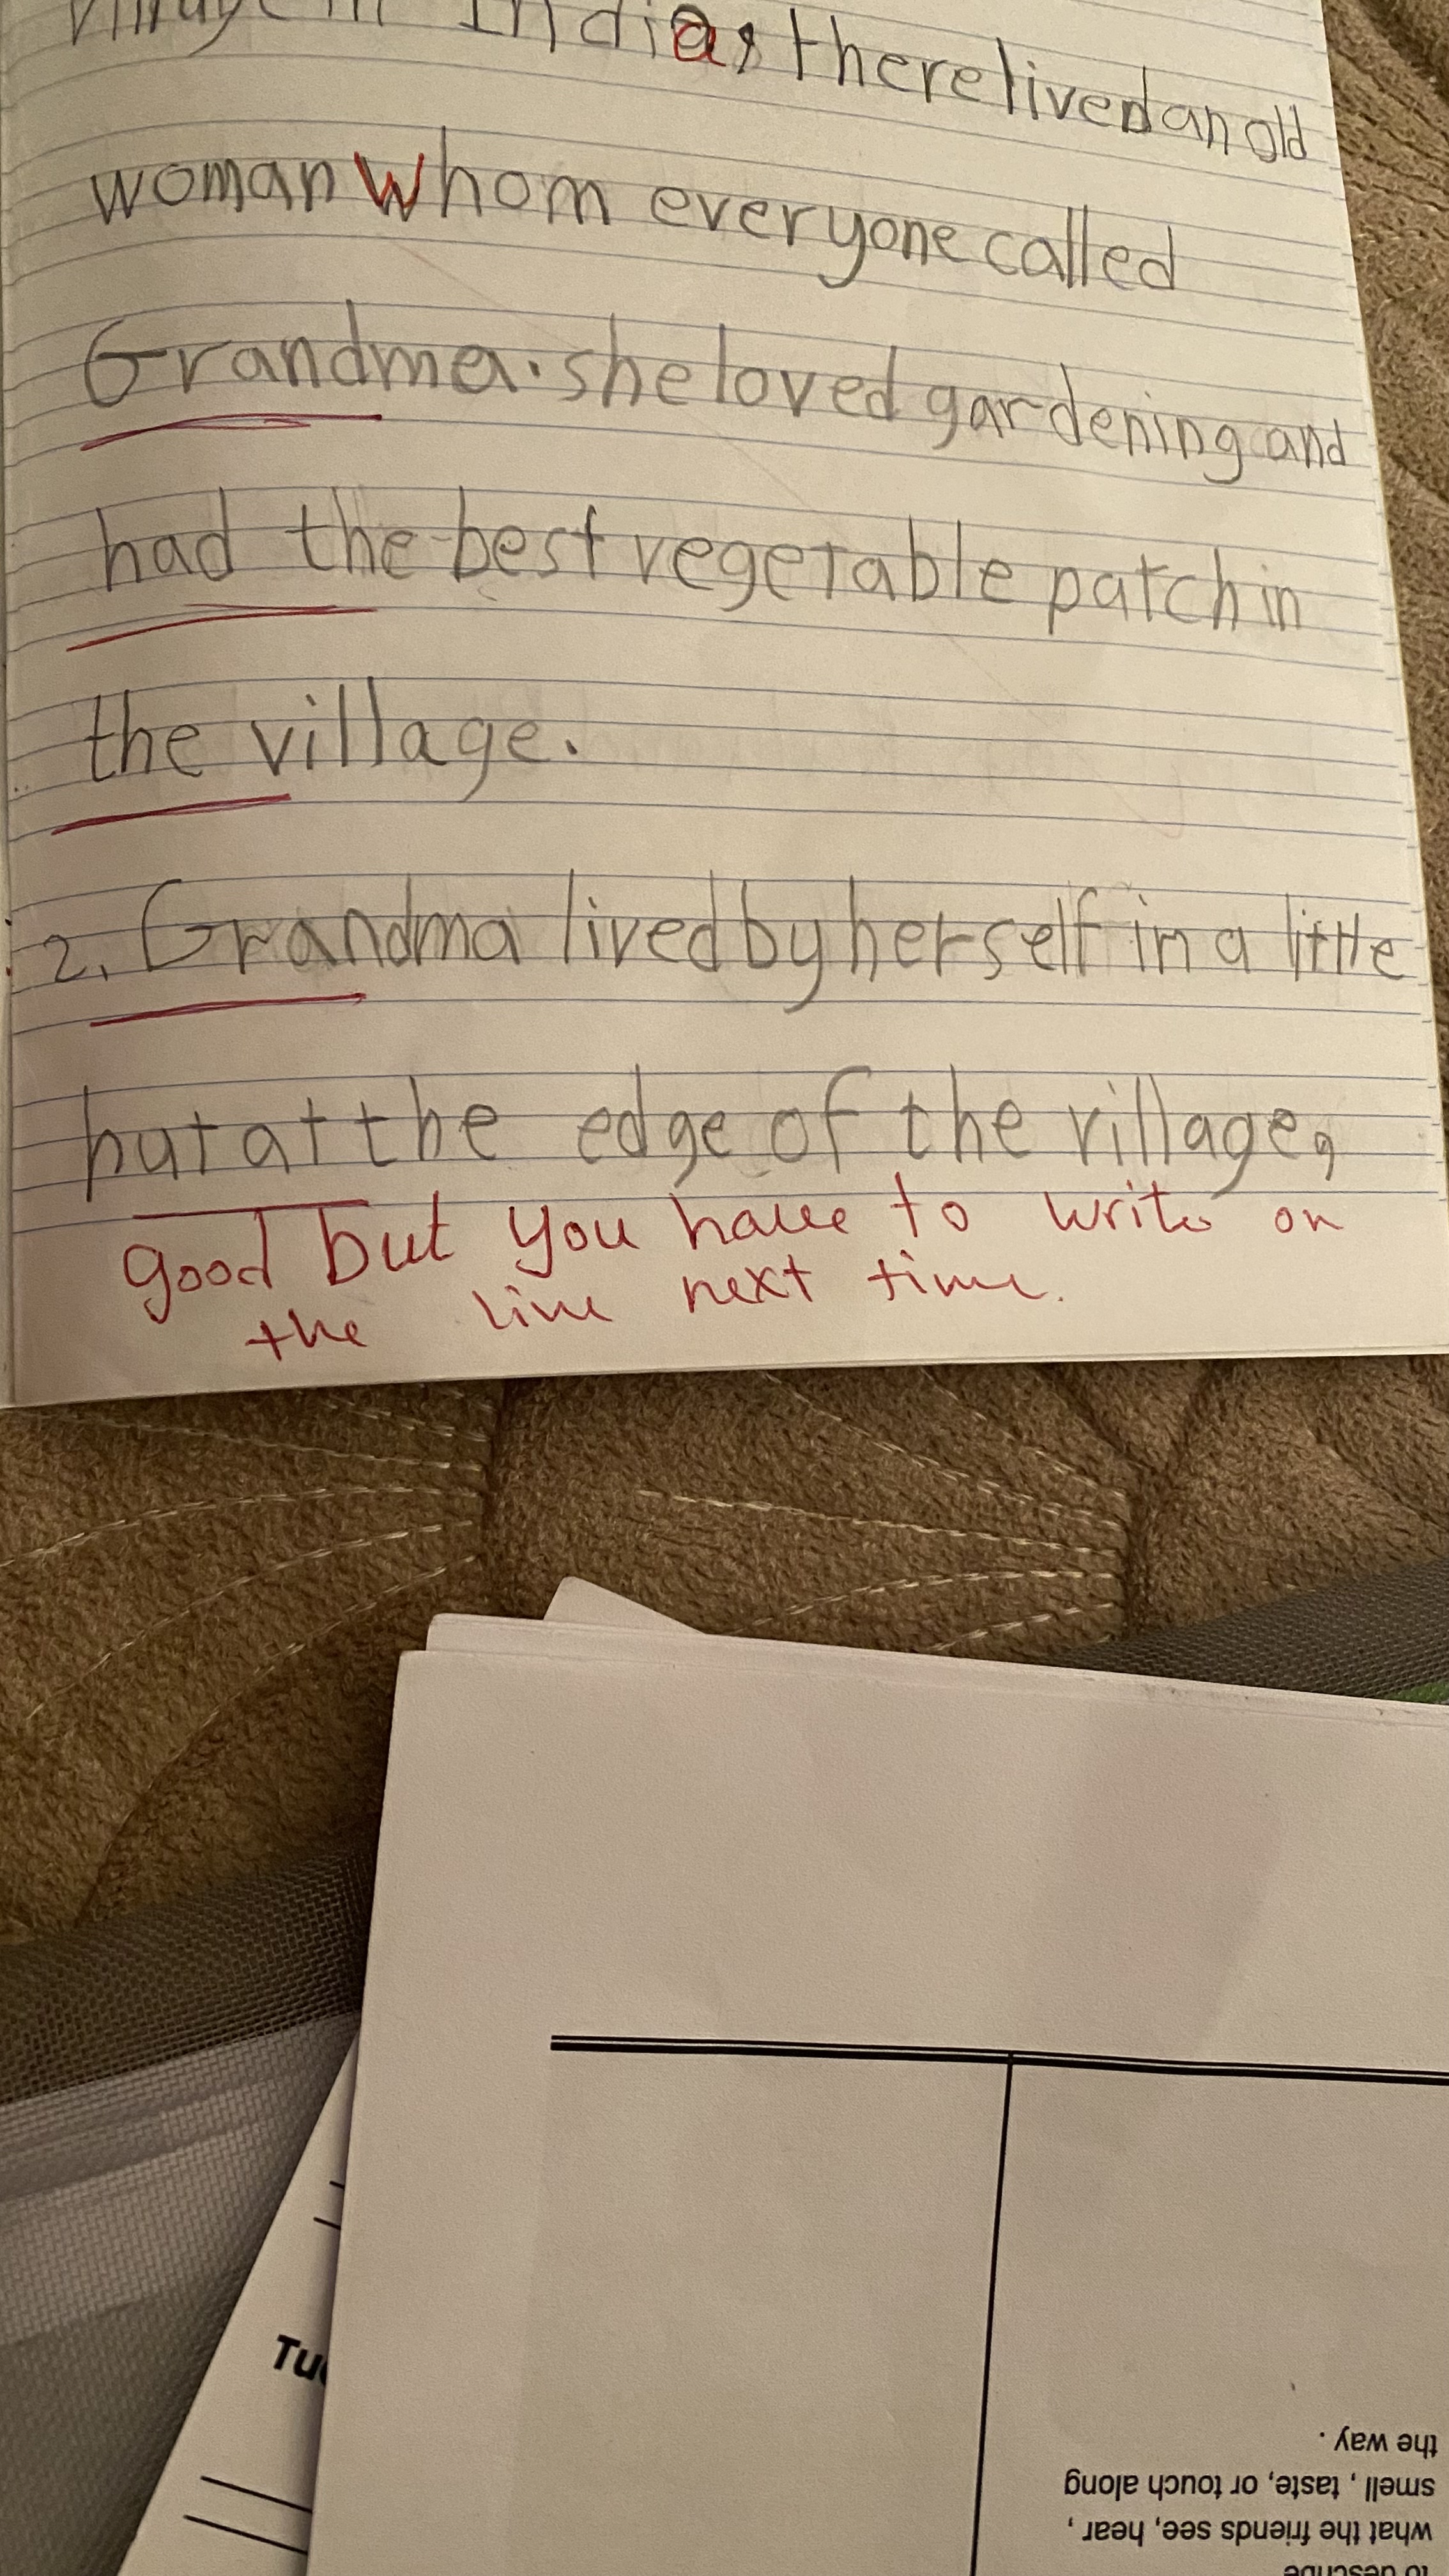 village in India, there lived an old
woman whom everyone called
Grandma. she loved gardening and
had the best vegetable patch in
the village.
2. Grandma lived by herself in a little
hut at the edge of the village,
good but you have to write on
the line next time.
Tu
to describe
what the friends see, hear ,
smell , taste, or touch along
the way .